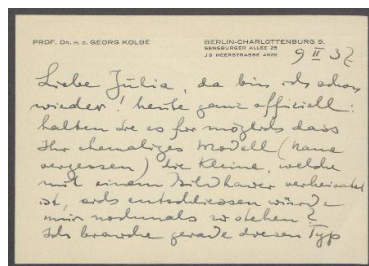 PROF. DR. H. C. GEORG KOLBE
BERLIN-CHARLOTTENBURG 9.
SENSBURGER ALLEE 25
J 9 HEERSTRASSE 4209
9 II 32
Liebe Julia, da bin ich schon
wieder! heute ganz officiell:
halten Sie es für möglich dass
Ihr ehemaliges Modell (Name
vergessen) die Kleine, welche
mit einem Bildhauer verheiratet
ist, sich entschliessen würde
mir nochmals zu stehen?
Ich brauche gerade diesen Typ